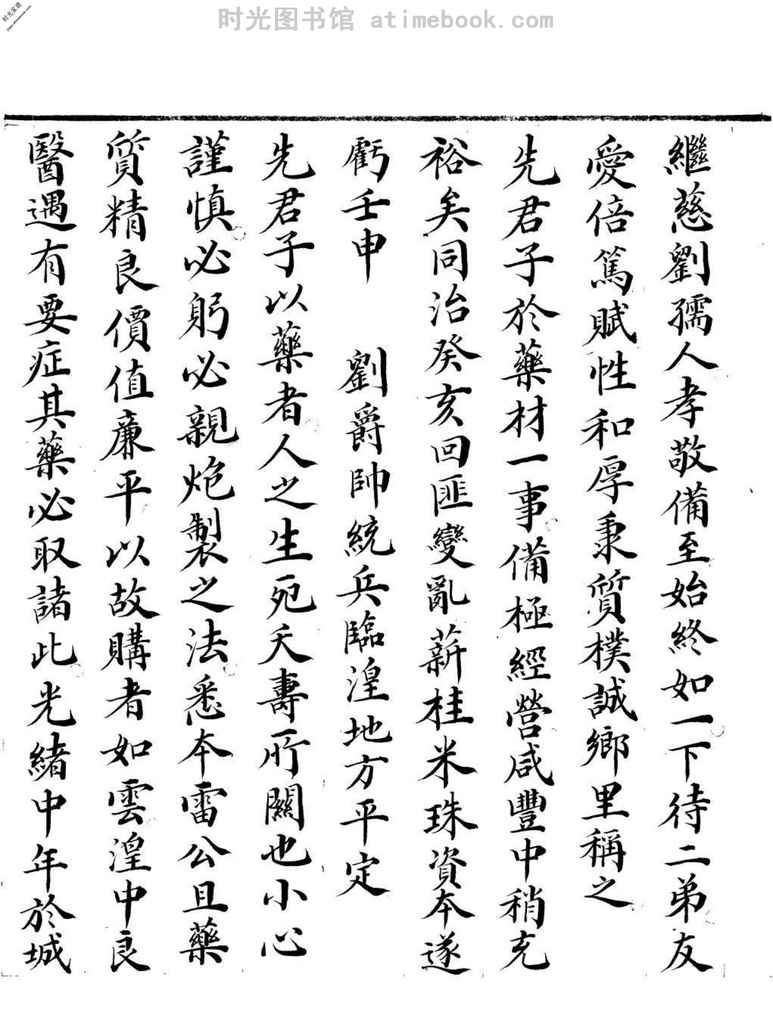 时光图书馆 atimebook.com
繼慈劉孺人孝敬備至始終如一下待二弟友
愛倍篤賦性和厚秉質樸誠鄉里稱之
先君子於藥材一事備極經營咸豐中稍充
裕矣同治癸亥回匪變亂薪桂米珠資本遂
虧壬申 劉爵帥統兵臨湟地方平定
先君子以藥者人之生死夭壽所關也小心
謹慎必躬必親炮製之法悉本雷公且藥
質精良價值廉平以故購者如雲湟中良
醫遇有要症其藥必取諸此光緒中年於城